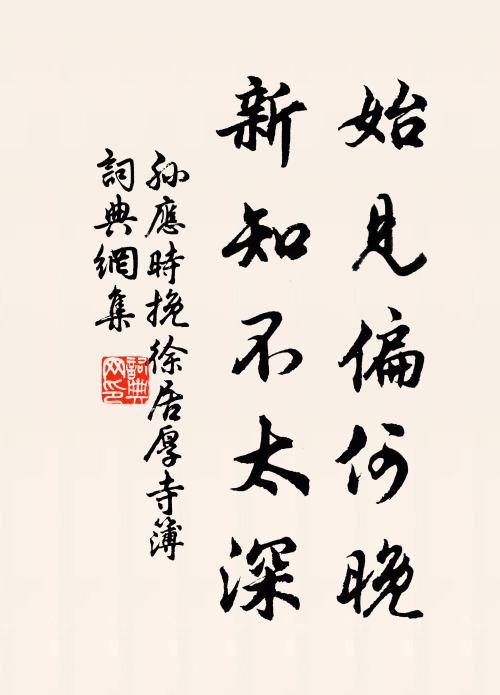 始見偏何晚
新知不太深
孫應時挽徐居厚寺簿
詞典網集
詞典
網印